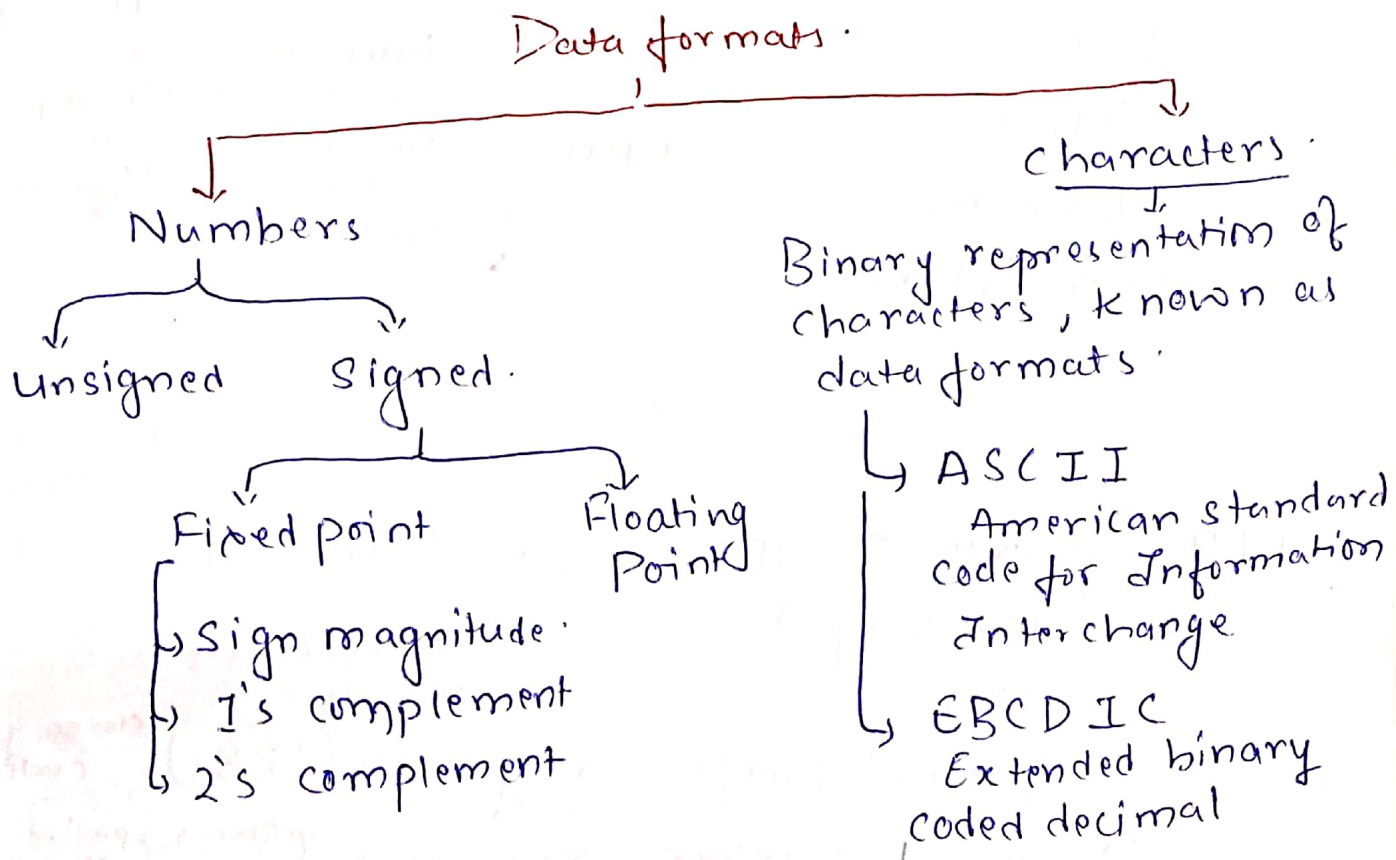 Data formats.
Numbers
Unsigned
Signed.
Fixed point
Floating
Point
Sign magnitude.
1's complement
2's complement
Characters.
Binary representation of
characters, known as
data formats.
ASCII
American standard
code for Information
Interchange
EBCDIC
Extended binary
coded decimal